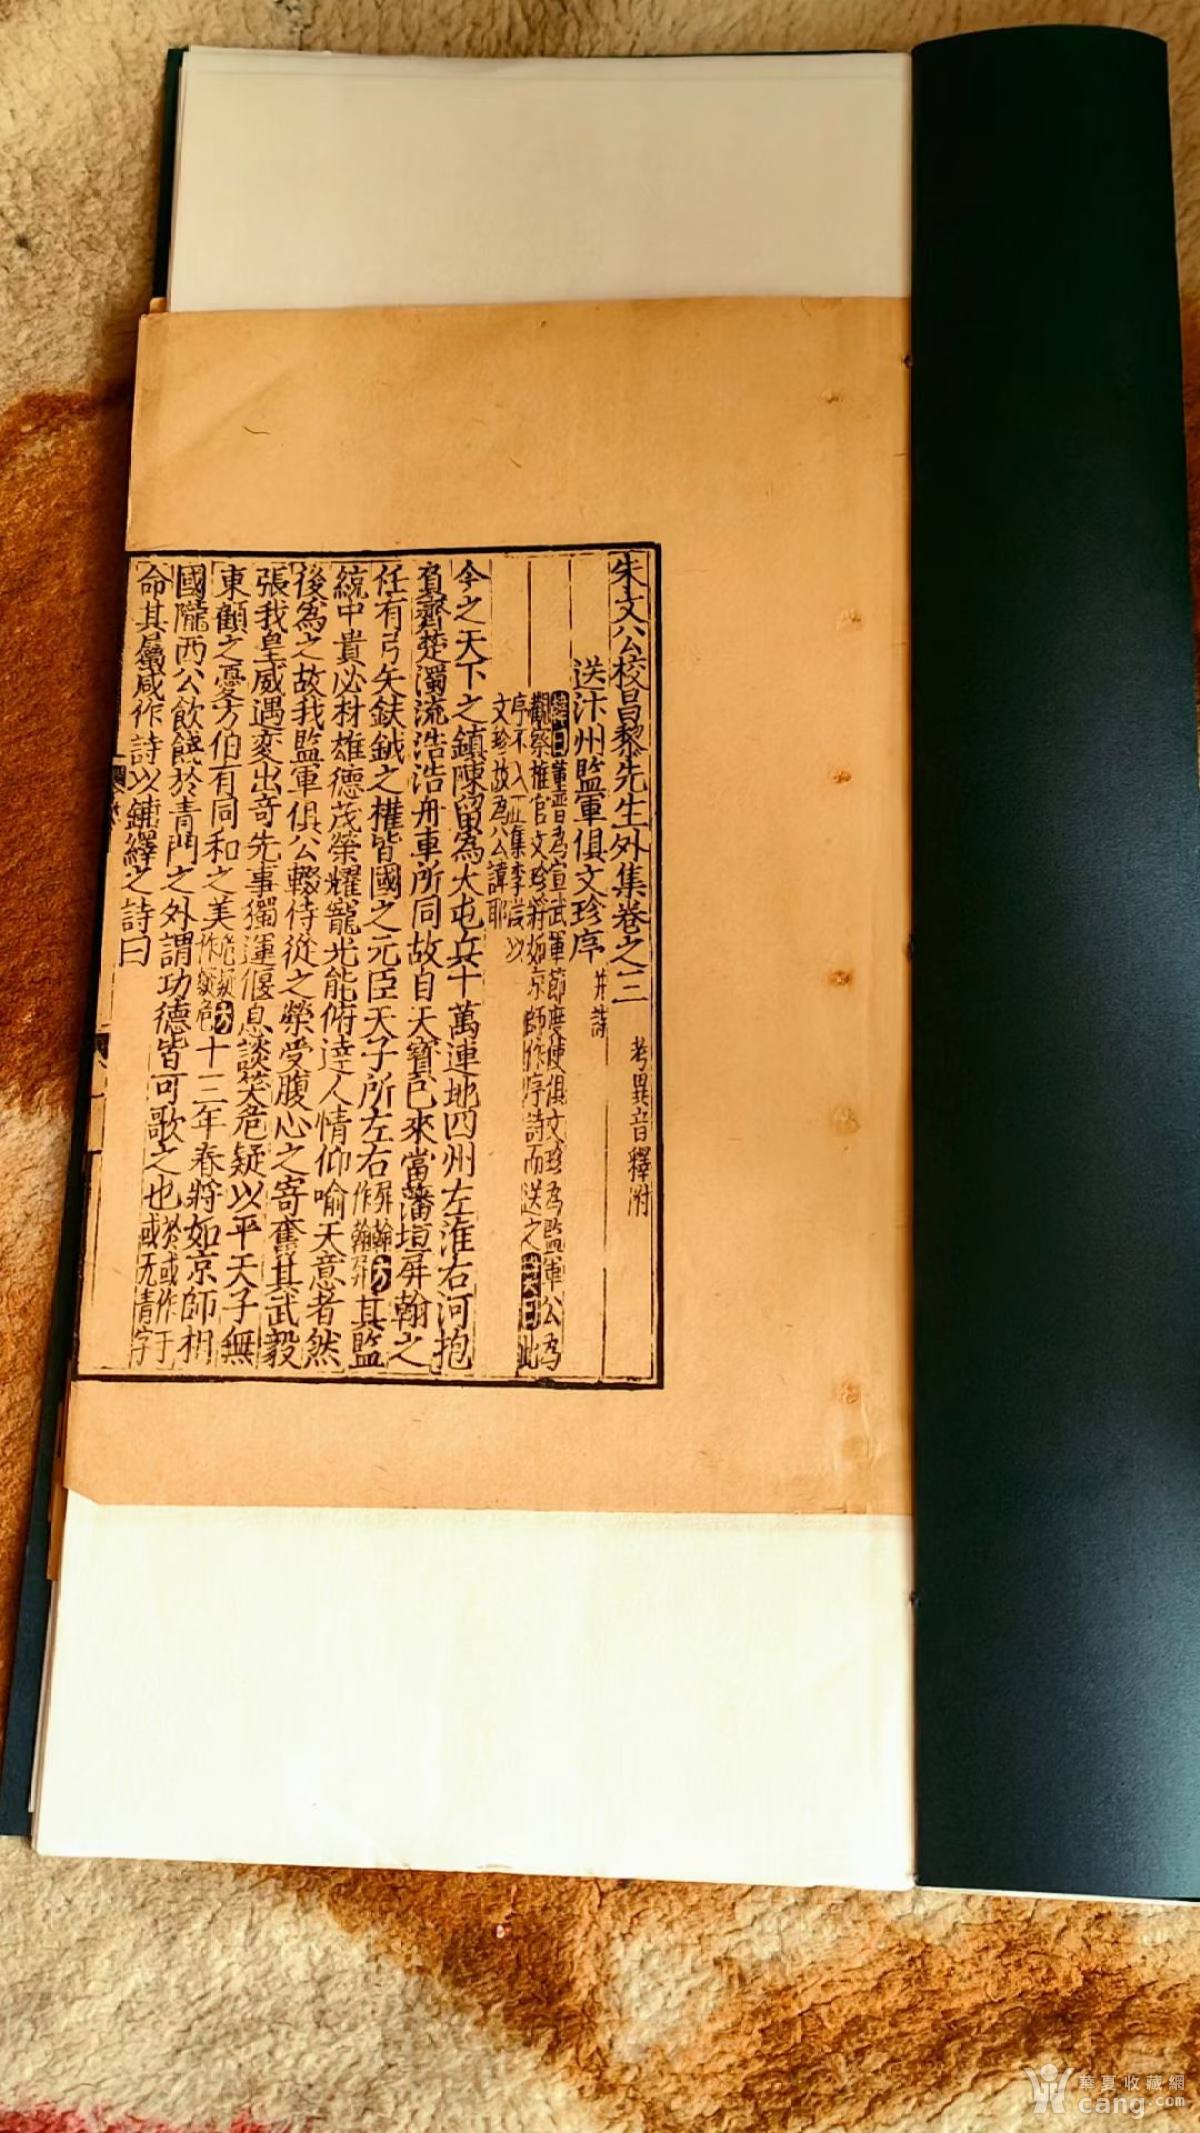 朱文公校昌黎先生外集卷之三 考異音釋附
送汴州監軍俱文珍序 并詩
樊曰董晉為宣武軍節度使俱文珍為監軍公為
觀察推官文珍將如京師作序詩而送之樊曰此
序不入正集李漢以
文珍故為公諱耶
今之天下之鎮陳留為大屯兵十萬連地四州左淮右河抱
負齊楚濁流浩浩舟車所同故自天寶已來當藩垣屏翰之
任有弓矢鈇鉞之權皆國之元臣天子所左右屏翰方作翰屏其監
統中貴必材雄德茂榮耀寵光能俯達人情仰喻天意者然
後為之故我監軍俱公輟侍從之榮受腹心之寄奮其武毅
張我皇威遇變出奇先事獨運偃息談笑危疑以平天子無
東顧之憂方伯有同和之美危疑方作疑危十三年春將如京師相
國隴西公飲餞於青門之外謂功德皆可歌之也於或作于或无青字
命其屬咸作詩以鋪繹之詩曰
華夏收藏網
cang.com